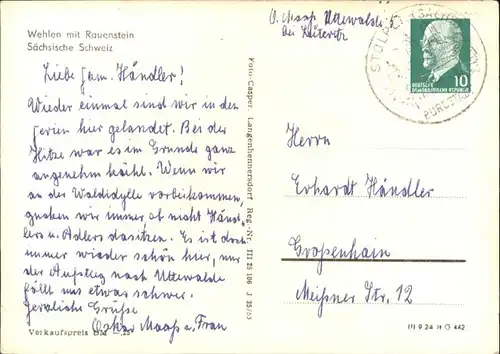 Wehlen mit Rauenstein
Sächsische Schweiz
O. Maaß, Uttewalde
bei Lohmen
Liebe Fam. Händler!
Wieder einmal sind wir in den
Ferien hier gelandet. Bei der
Hitze war es im Grunde ganz
angenehm kühl. Wenn wir
an der Waldidylle vorbeikommen,
gucken wir immer ob nicht Händ-
lers u. Adlers dasitzen. Es ist doch
immer wieder schön hier, nur
der Aufstieg nach Uttewalde
fällt uns etwas schwer.
Herzliche Grüße
Oskar Maaß u. Frau
Verkaufspreis DM –,25
Foto-Casper, Langenhennersdorf Reg.-Nr. III 25 106 J 35/63
STOLPEN
SACHSEN
10
DEUTSCHE
DEMOKRATISCHE REPUBLIK
Herrn
Erhardt Händler
Großenhain
Meißner Str. 12
III 9 24 It G 442